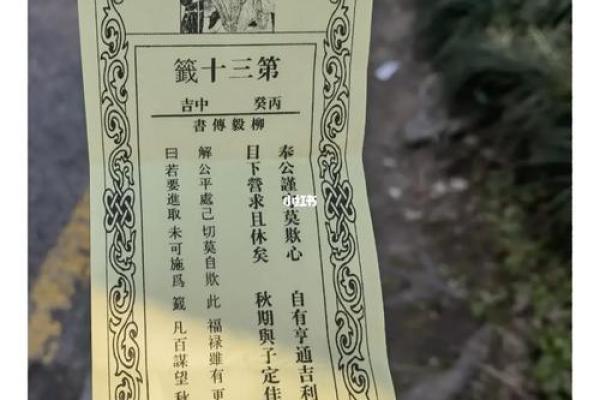 第三十籤
丙癸 中吉
柳毅傳書
奉公謹 莫欺心 自有亨通吉利
目下營求且休矣 秋期與子定佳
解公平處己切莫自欺 此 福祿雖有 更
曰若要進取未可施爲 籤 凡百謀望 秋
小红书